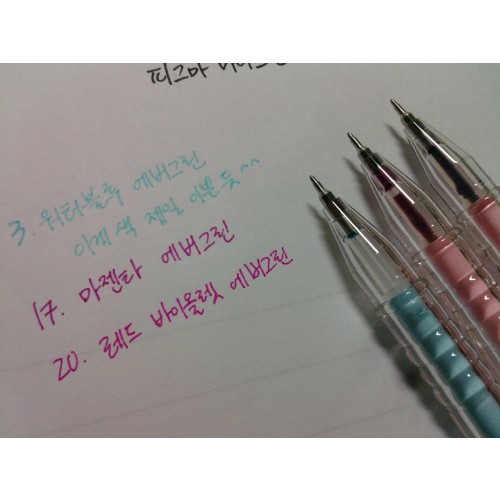 피그마
3. 워터블루 에버그린
이게 색 제일 이쁜 듯^^
17. 마젠타 에버그린
20. 레드 바이올렛 에버그린